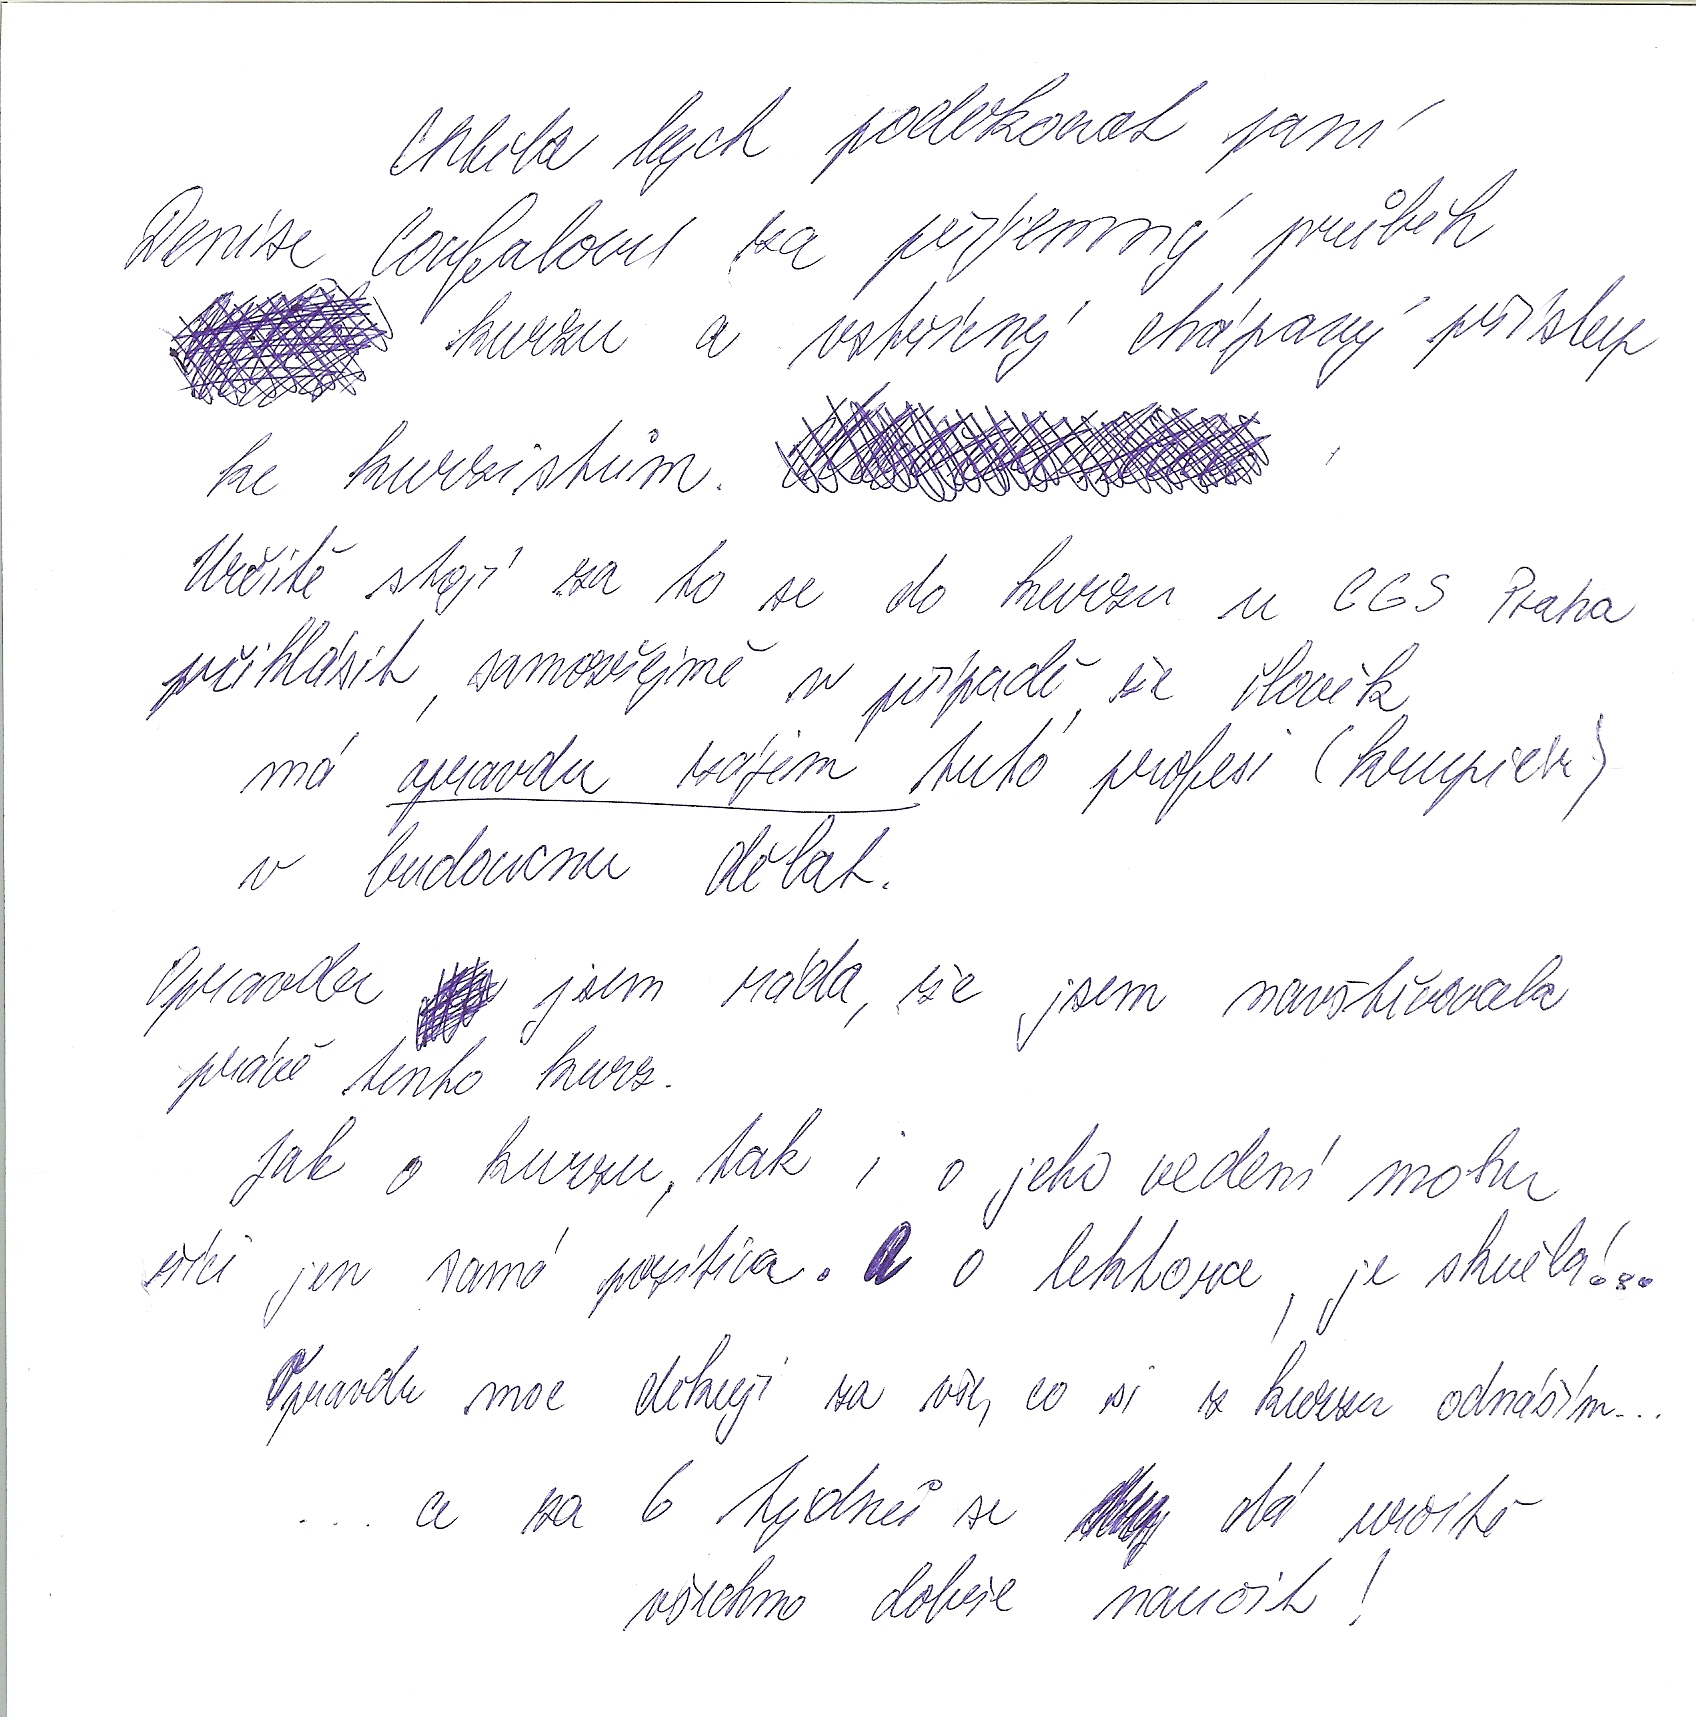 Chtěla bych poděkovat paní
Denise Coufalové za příjemný průběh
kurzu a vstřícný chápavý přístup
ke kurzistům.
Určitě stojí za to se do kurzu u CGS Praha
přihlásit, samozřejmě v případě, že člověk
má opravdu zájem tuto profesi (krupiér)
v budoucnu dělat.
Opravdu jsem ráda, že jsem navštěvovala
právě tento kurz.
Jak o kurzu, tak i o jeho vedení mohu
říci jen samá pozitiva. A o lektorce, je skvělá!..
Opravdu moc děkuji za vše, co si z kurzu odnáším...
... a za 6 týdnů se dá určitě
všechno dobře naučit!